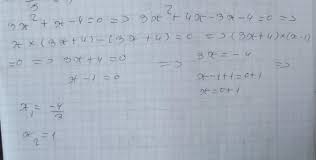 3x²+x-4=0 => 3x²+4x-3x-4=0 =>
x×(3x+4)-(3x+4)=0 => (3x+4)×(x-1)
=0 => 3x+4=0 => 3x=-4 =>
x-1=0 x-1+1=0+1
x=0+1
x₁=-4/3
x₂=1